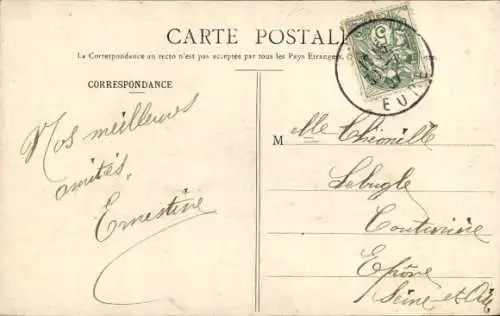 CARTE POSTALE
La Correspondance au recto n'est pas acceptée par tous les Pays Etrangers.
CORRESPONDANCE
Nos meilleures
amitiés,
Ernestine
M
elle
Lebugle
Couturière
Epône
Seine et Oise
5
EURE